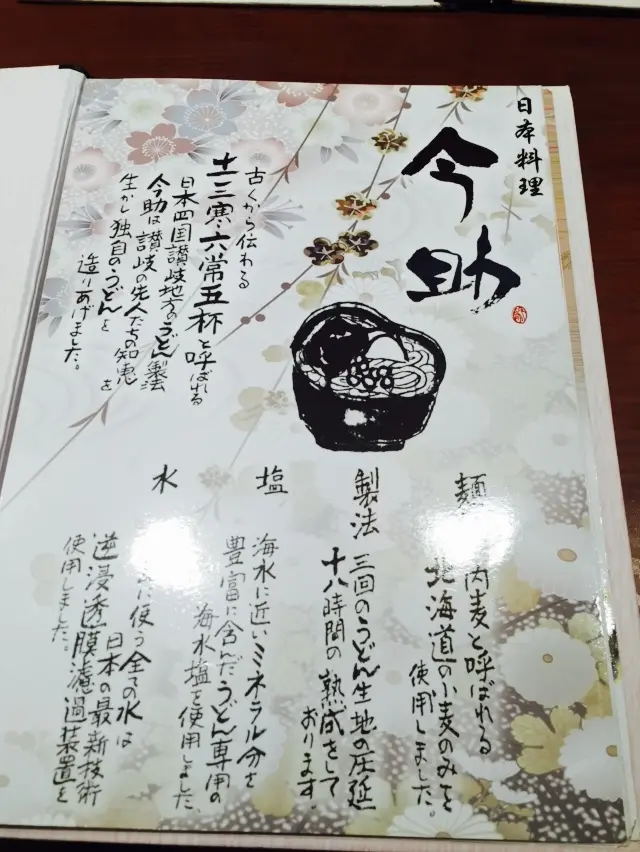 日本料理
今助
古くから伝わる
土三寒六常五杯と呼ばれる
日本四国讃岐地方のうどん製法
今助は讃岐の先人たちの知恵を
生かし独自のうどんを
造りあげました。
麺
内麦と呼ばれる
北海道の小麦のみを
使用しました。
製法
三回のうどん生地の圧延
十八時間の熟成をして
おります。
塩
海水に近いミネラル分を
豊富に含んだうどん専用の
海水塩を使用しました
水
に使う全ての水は
日本の最新技術
逆浸透膜濾過装置を
使用しました。